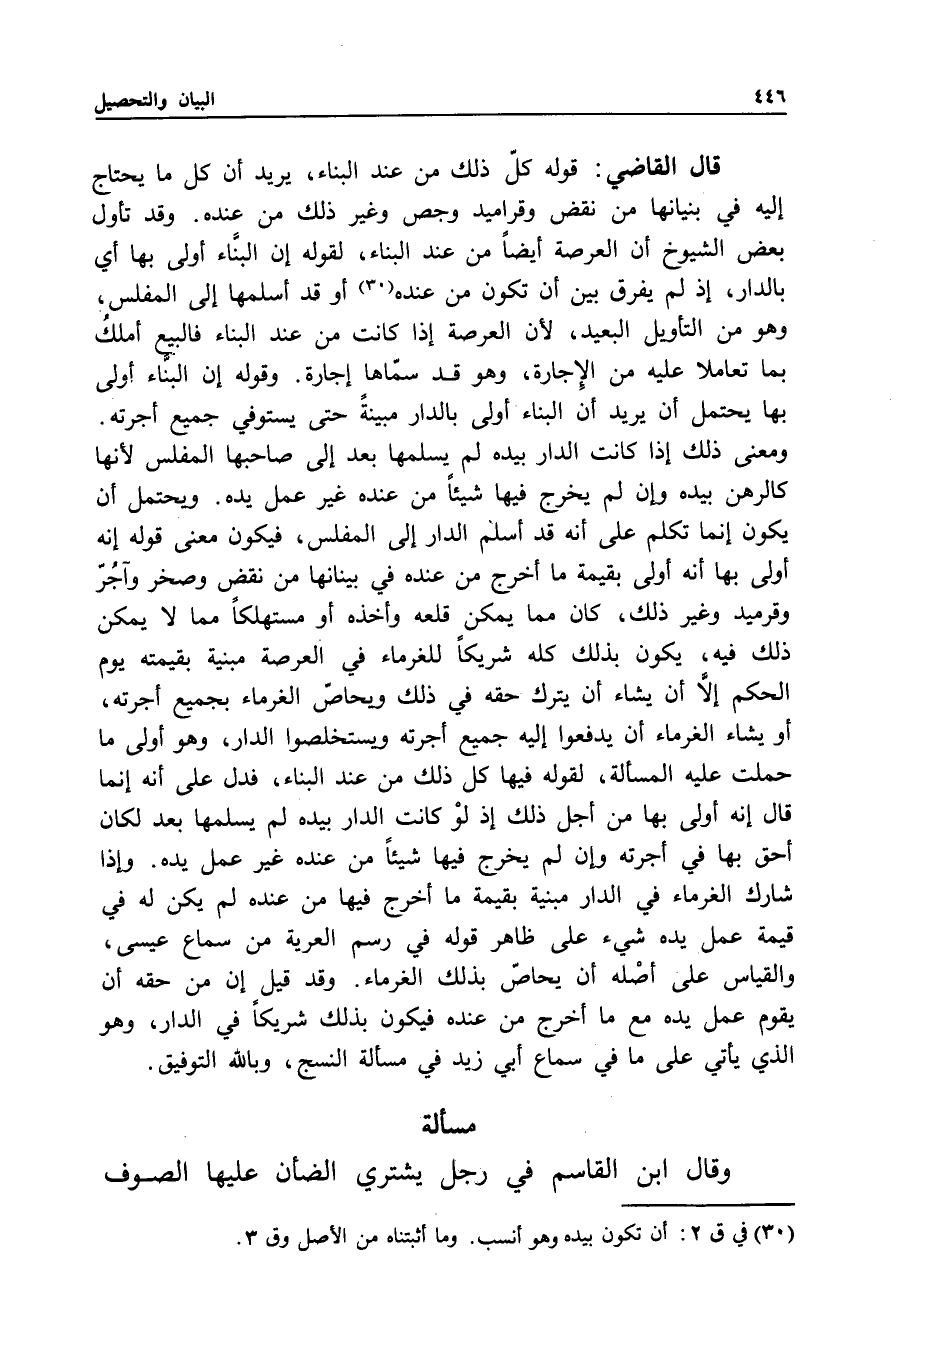 ٤٤٦ البيان والتحصيل
قال القاضي: قوله كلّ ذلك من عند البناء، يريد أن كل ما يحتاج
إليه في بنيانها من نقض وقراميد وجص وغير ذلك من عنده. وقد تأول
بعض الشيوخ أن العرصة أيضاً من عند البناء، لقوله إن البنَّاء أولى بها أي
بالدار، إذ لم يفرق بين أن تكون من عنده(٣٠) أو قد أسلمها إلى المفلس،
وهو من التأويل البعيد، لأن العرصة إذا كانت من عند البناء فالبيع أملكُ
بما تعاملا عليه من الإِجارة، وهو قد سمّاها إجارة. وقوله إن البنَّاء أولى
بها يحتمل أن يريد أن البناء أولى بالدار مبينةً حتى يستوفي جميع أجرته.
ومعنى ذلك إذا كانت الدار بيده لم يسلمها بعد إلى صاحبها المفلس لأنها
كالرهن بيده وإن لم يخرج فيها شيئاً من عنده غير عمل يده. ويحتمل أن
يكون إنما تكلم على أنه قد أسلم الدار إلى المفلس، فيكون معنى قوله إنه
أولى بها أنه أولى بقيمة ما أخرج من عنده في بينانها من نقض وصخر وآجُرّ
وقرميد وغير ذلك، كان مما يمكن قلعه وأخذه أو مستهلكاً مما لا يمكن
ذلك فيه، يكون بذلك كله شريكاً للغرماء في العرصة مبنية بقيمته يوم
الحكم إلاَّ أن يشاء أن يترك حقه في ذلك ويحاصّ الغرماء بجميع أجرته،
أو يشاء الغرماء أن يدفعوا إليه جميع أجرته ويستخلصوا الدار، وهو أولى ما
حملت عليه المسألة، لقوله فيها كل ذلك من عند البناء، فدل على أنه إنما
قال إنه أولى بها من أجل ذلك إذ لوْ كانت الدار بيده لم يسلمها بعد لكان
أحق بها في أجرته وإن لم يخرج فيها شيئاً من عنده غير عمل يده. وإذا
شارك الغرماء في الدار مبنية بقيمة ما أخرج فيها من عنده لم يكن له في
قيمة عمل يده شيء على ظاهر قوله في رسم العرية من سماع عيسى،
والقياس على أصْله أن يحاصّ بذلك الغرماء. وقد قيل إن من حقه أن
يقوم عمل يده مع ما أخرج من عنده فيكون بذلك شريكاً في الدار، وهو
الذي يأتي على ما في سماع أبي زيد في مسألة النسج، وبالله التوفيق.
مسألة
وقال ابن القاسم في رجل يشتري الضأن عليها الصوف
(٣٠) في ق ٢: أن تكون بيده وهو أنسب. وما أثبتناه من الأصل وق ٣.